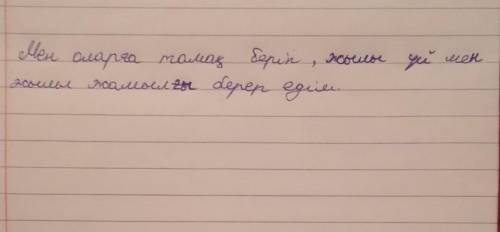 Мен оларға тамақ беріп, жылы үй мен
жылы жамылғы берер едім.